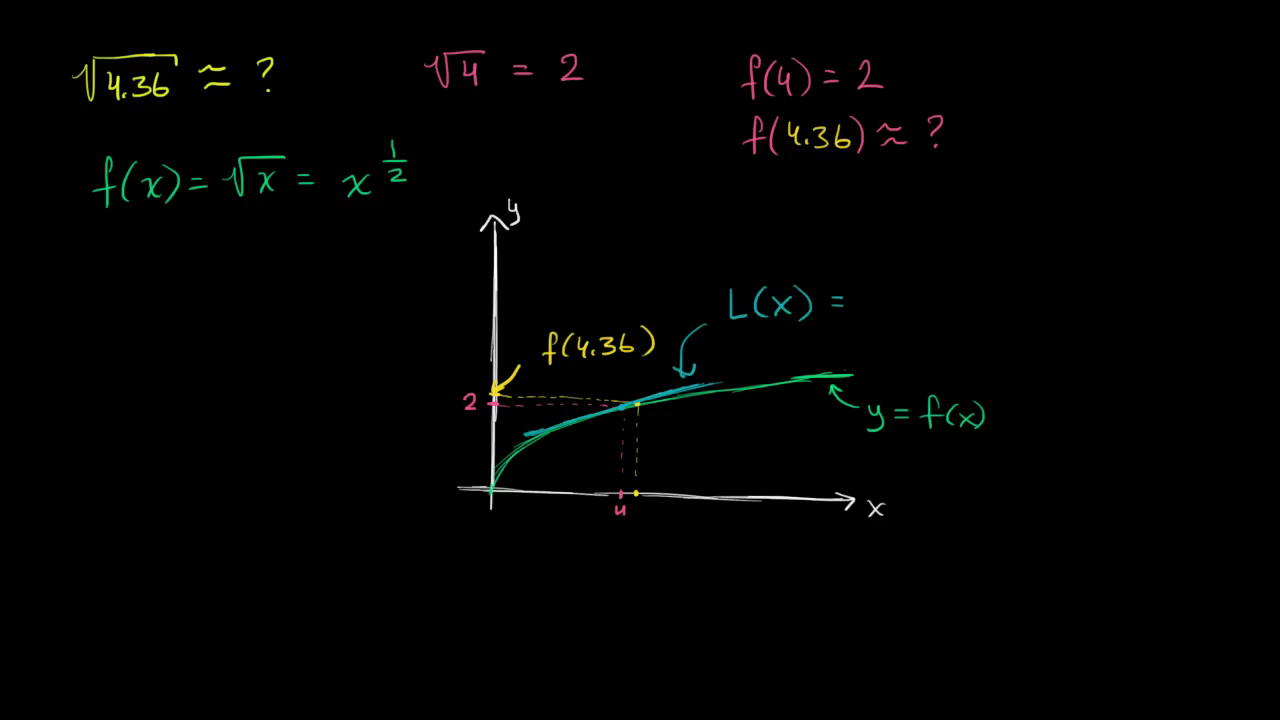 √4.36 ≈ ?
√4 = 2
f(4) = 2
f(4.36) ≈ ?
f(x) = √x = x^(1/2)
y
L(x) =
f(4.36)
2
y = f(x)
4
x